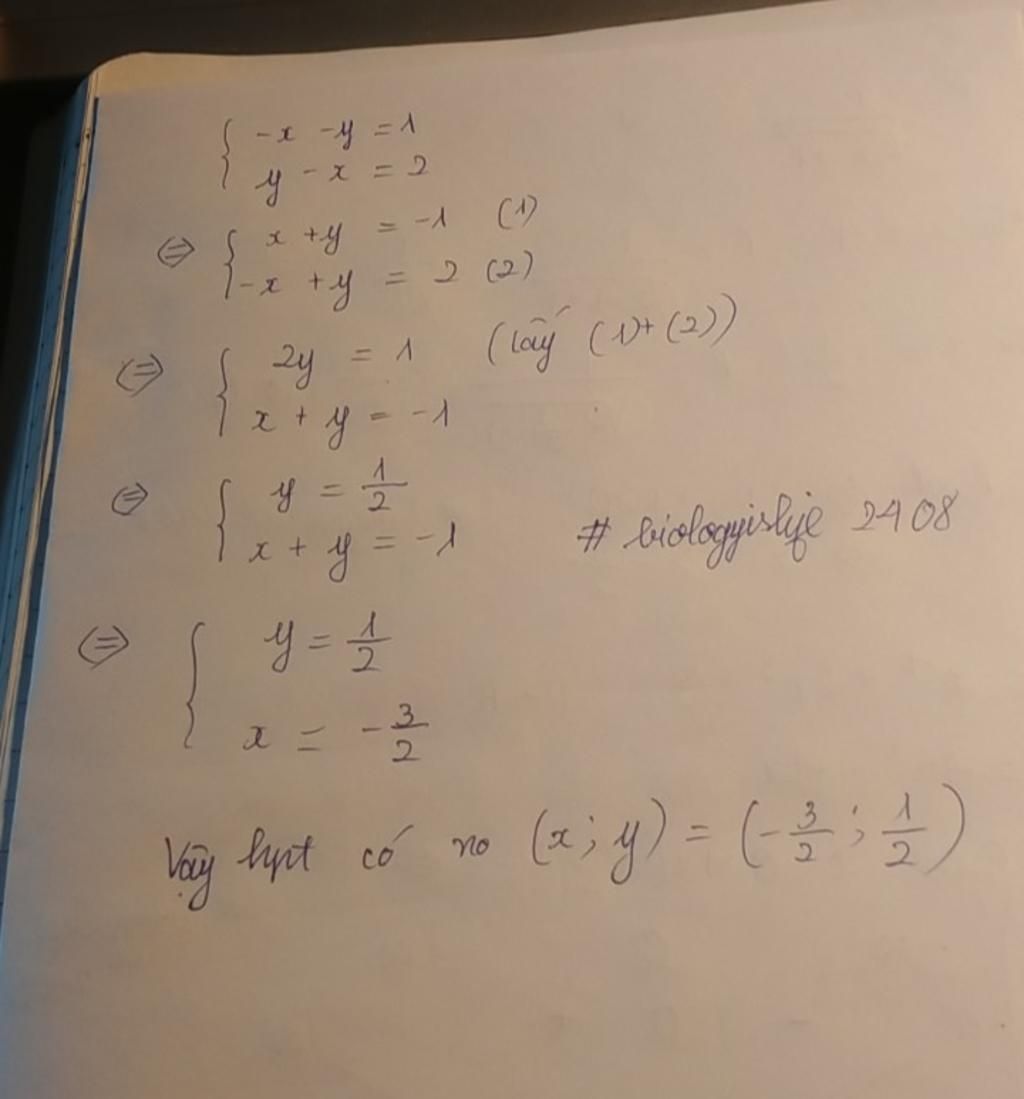 { -x - y = 1
y - x = 2
⇔ { x + y = -1 (1)
-x + y = 2 (2)
⇔ { 2y = 1 (lấy (1) + (2))
x + y = -1
⇔ { y = 1/2
x + y = -1 # biologyislife 2408
⇔ { y = 1/2
x = -3/2
Vậy hpt có no (x; y) = (-3/2; 1/2)